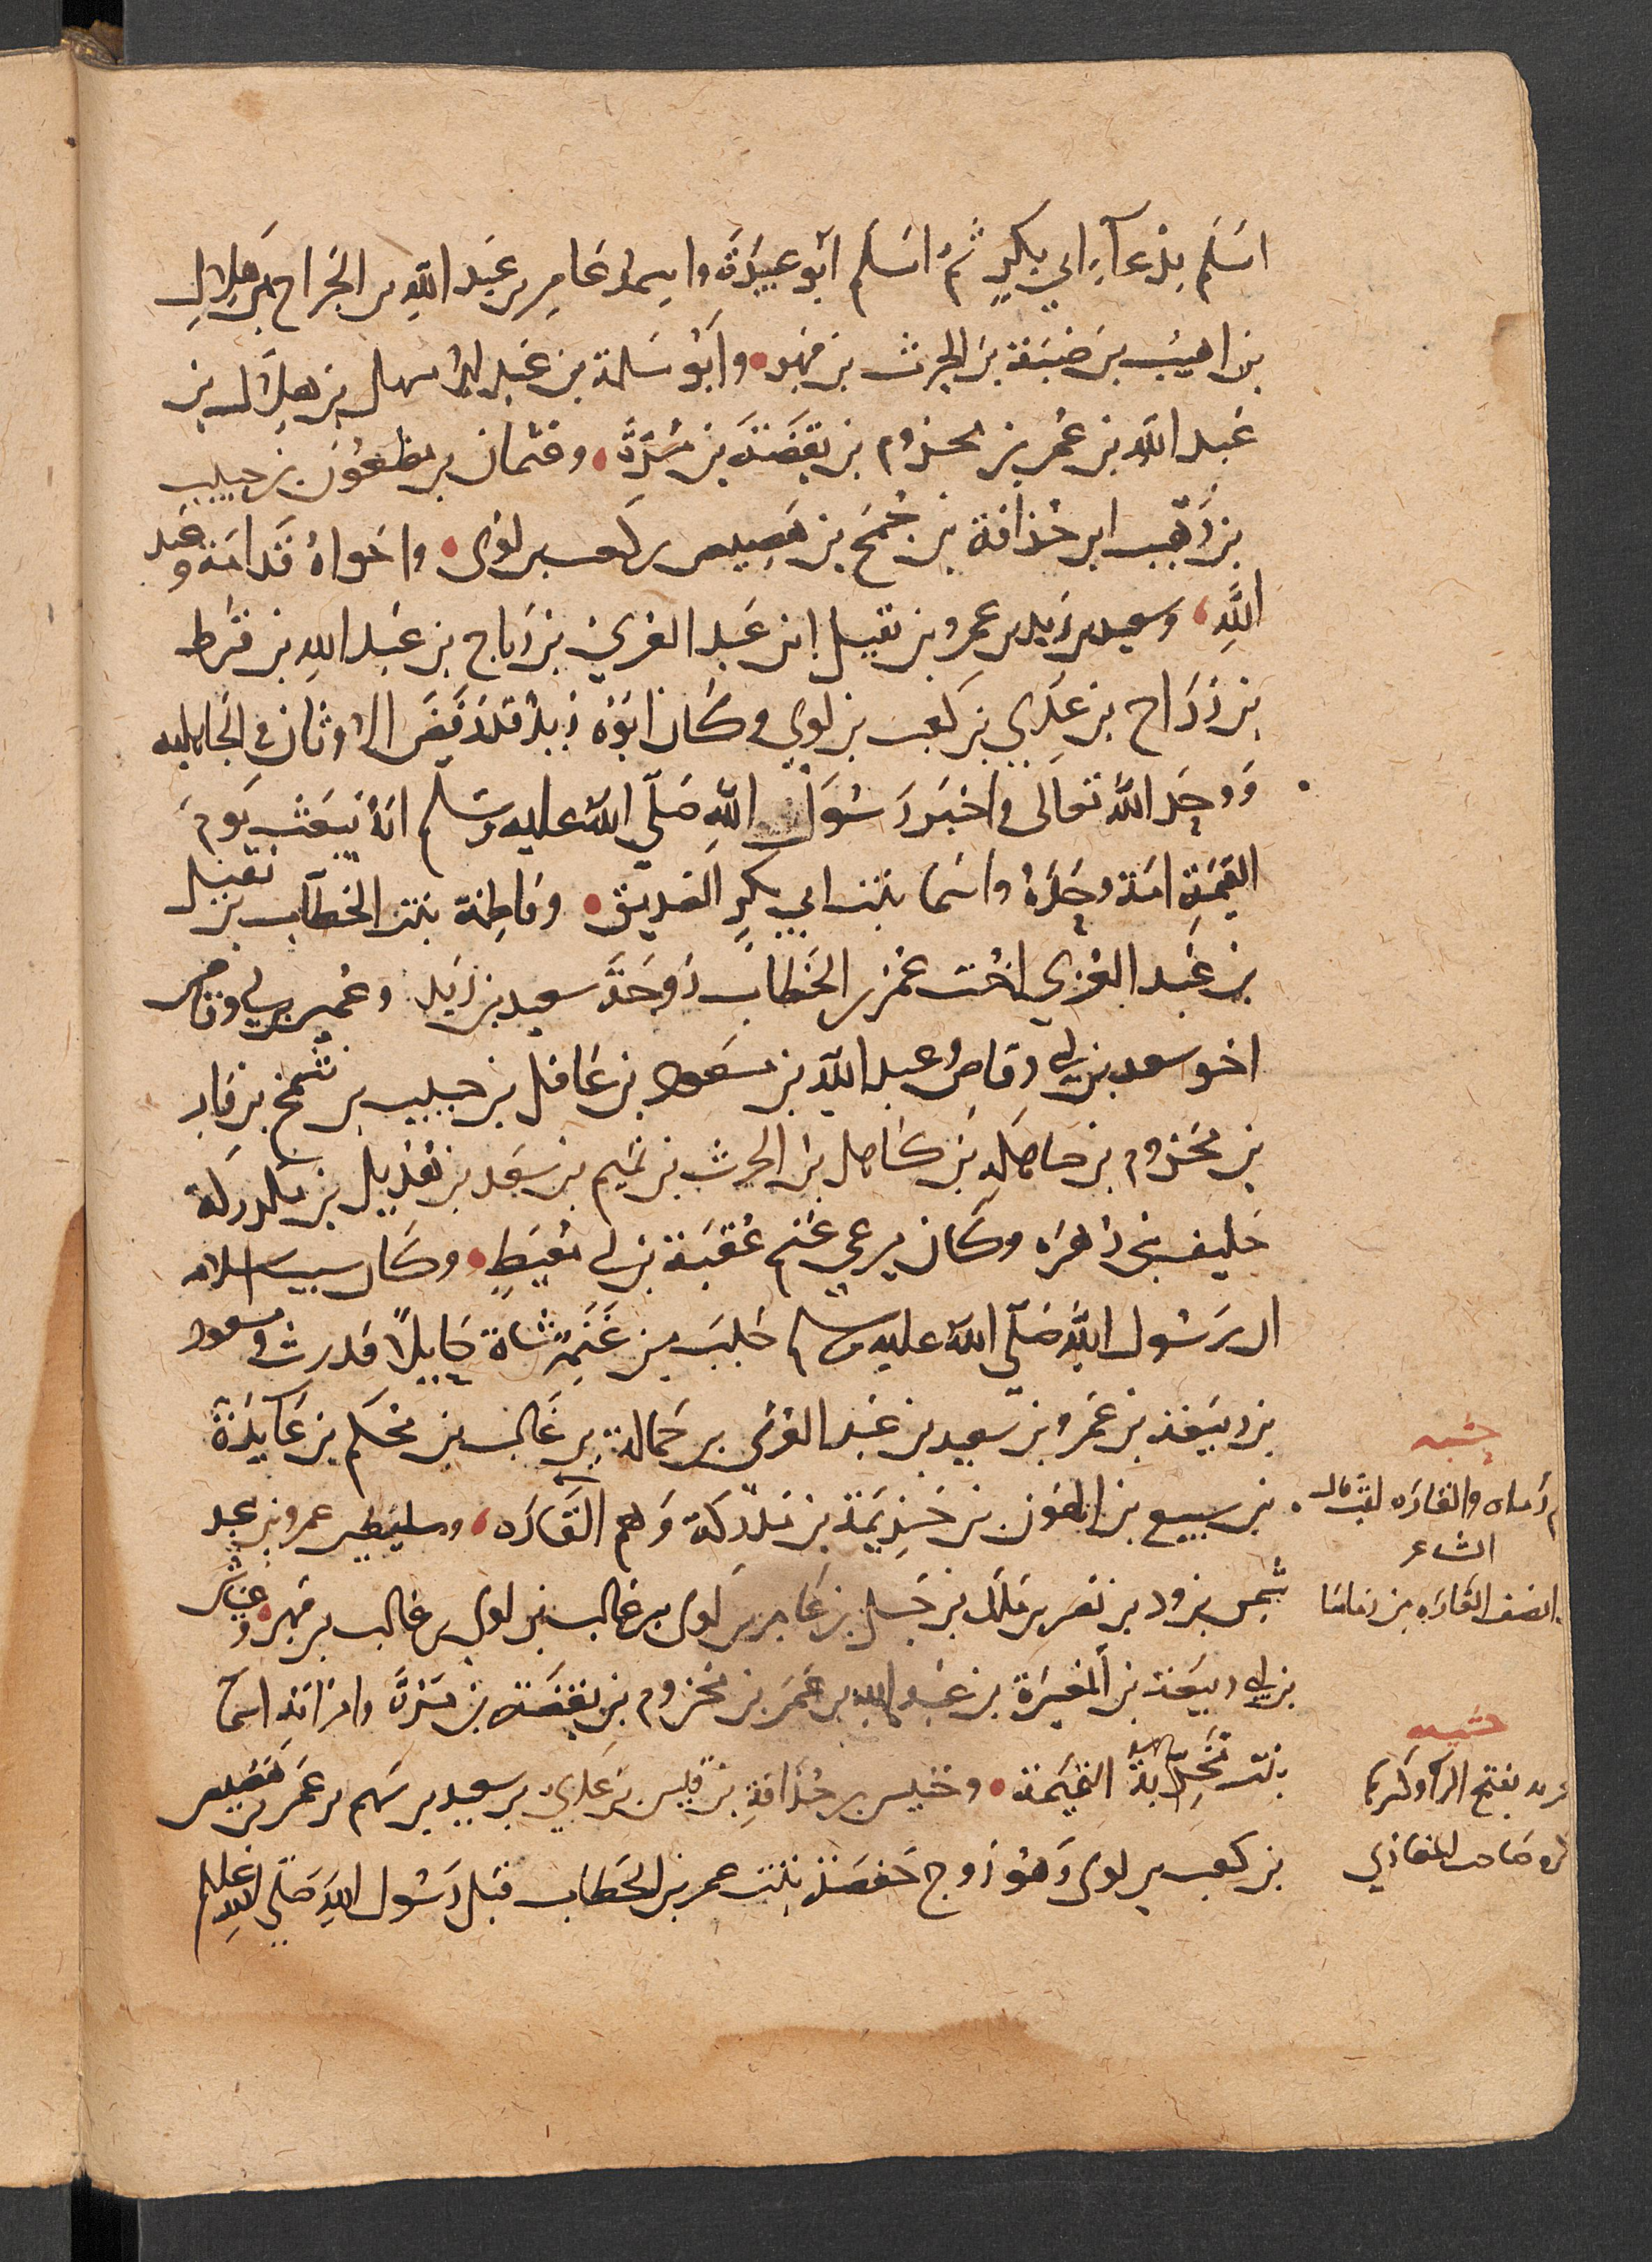 اسلم بدعآء ابي بكرٍ ثم اسلم ابو عبيدة واسمه عامر بن عبد الله بن الجراح بن هلال
بن اهيب بن ضبة بن الحرث بن فهر وابو سلمة بن عبد الاسهل بن هلال بن
عبد الله بن عمر بن مخزوم بن يقضة بن مرة وعثمان بن مظعون بن حبيب
بن وهب ابن حذافة بن جمح بن هصيص بن كعب بن لوى واخواه قدامة وعبد
الله وسعيد بن زيد بن عمرو بن نفيل ابن عبد العزي بن رياح بن عبد الله بن قرط
بن رزاح بن عدي بن كعب بن لوي وكان ابوه زيد قد رفض الاوثان في الجاهليه
ووحد الله تعالى واخبر رسول الله صلى الله عليه وسلم انه يبعث يوم
القيمة امة وحده واسما بنت ابي بكرٍ الصديق وفاطمة بنت الخطاب بن نفيل
بن عبد العزي اخت عمر بن الخطاب زوجة سعيد بن زيد وعمير بن ابي وقاص
اخو سعد بن ابي وقاص وعبد الله بن مسعود بن غافل بن حبيب بن شمخ بن فار
بن مخزوم بن صاهله بن كاهل بن الحرث بن تميم بن سعد بن هذيل بن مدركة
حليف بني زهره وكان يرعي غنم عقبة بن ابي معيط وكان سبب اسلامه
ان رسول الله صلى الله عليه وسلم حلب من غنمه شاة حايلاً فدرت ومسعود
بن ربيعة بن عمرو بن سعيد بن عبد العزى بن حمالة بن غالب بن محكم بن عايذة
بن سبيع بن الهون بن خزيمة بن مدركة وهم القاره وسليط بن عمرو بن عبد
شمس بن ود بن نصر بن ملك بن حسل بن عامر بن لوى بن غالب بن لوي بن غالب بن فهر وعياش
بن ابي ربيعة بن المغيرة بن عبد الله بن عمر بن مخزوم بن يقضة بن مرة وامراته اسمآ
بنت مخربة التميمة وخنيس بن حذافة بن قيس بن عدي بن سعيد بن سهم بن عمر بن هصيص
بن كعب بن لوى وهو زوج حفصة بنت عمر بن الخطاب قبل رسول الله صلى الله عليه وسلم
حشيه
رماه والقاره لقب قال
الشاعر
انصف القاره من راماها
حشيه
بفتح الرا وكسرها
صاحب المغازي